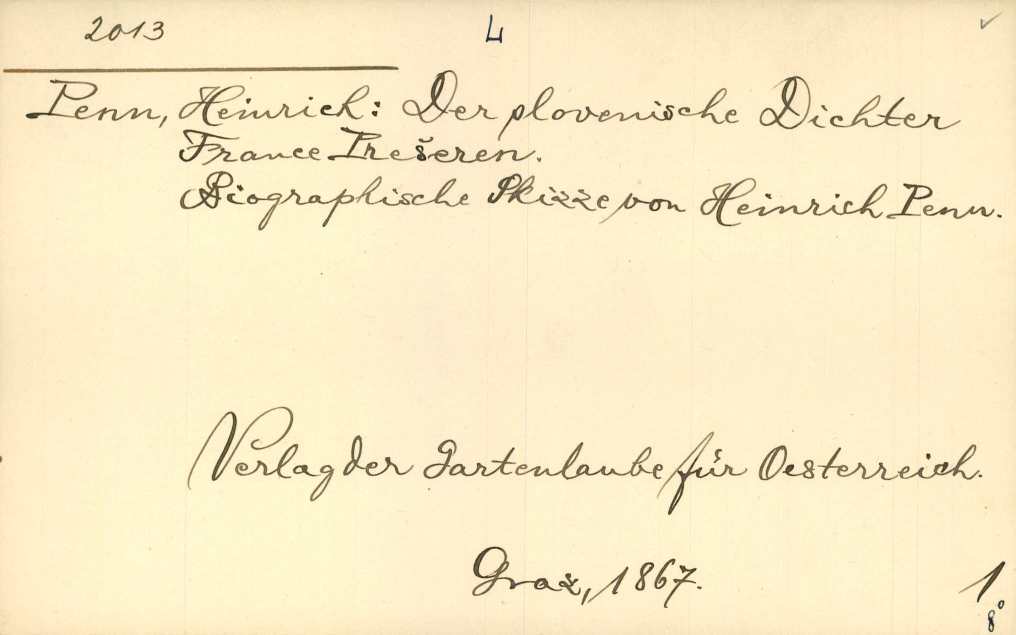 2013 L ✓
Penn, Heinrich: Der slovenische Dichter
France Prešeren.
Biographische Skizze von Heinrich Penn.
Verlag der Gartenlaube für Oesterreich.
Graz, 1867. 1
8°